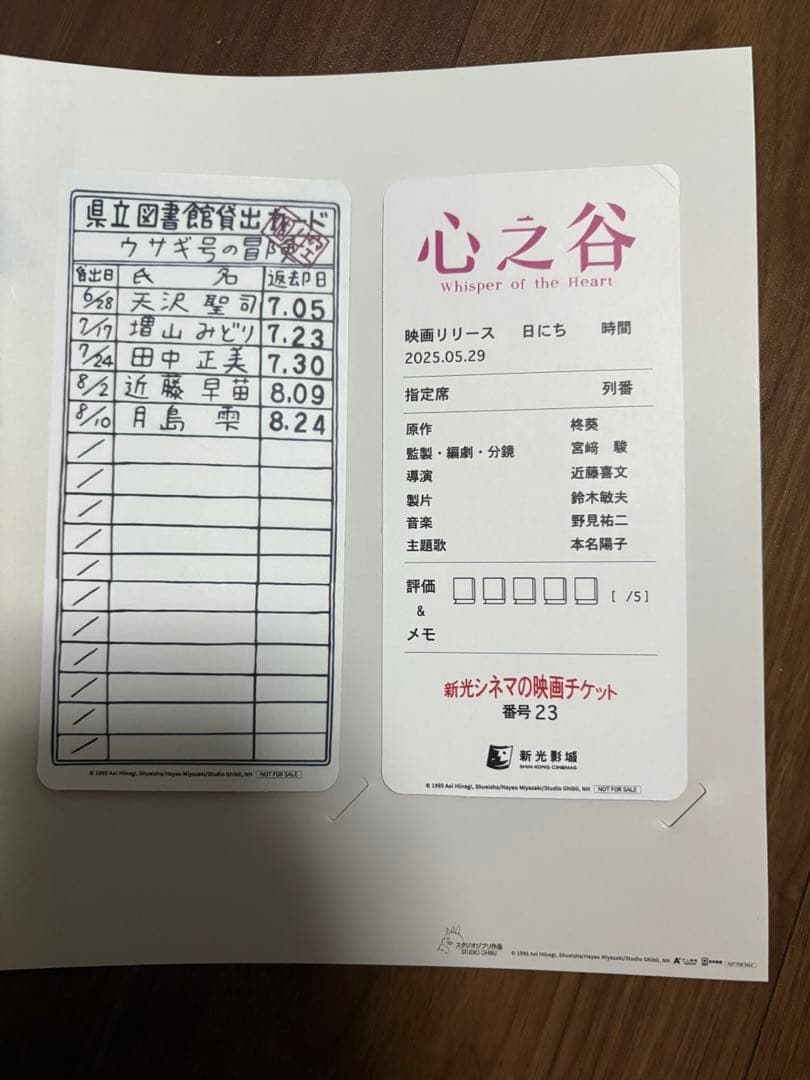 県立図書館貸出カード
ウサギ号の冒険
貸出日 氏 名 返却日
6/28 天沢 聖司 7.05
7/17 増山 みどり 7.23
7/24 田中 正美 7.30
8/2 近藤 早苗 8.09
8/10 月島 雫 8.24
© 1995 Aoi Hiiragi, Shueisha/Hayao Miyazaki/Studio Ghibli, NH NOT FOR SALE
心之谷
Whisper of the Heart
映画リリース 日にち 時間
2025.05.29
指定席 列番
原作 柊葵
監製・編劇・分鏡 宮﨑 駿
導演 近藤喜文
製片 鈴木敏夫
音楽 野見祐二
主題歌 本名陽子
評価 [ /5]
&
メモ
新光シネマの映画チケット
番号 23
新光影城
SHIN KONG CINEMAS
© 1995 Aoi Hiiragi, Shueisha/Hayao Miyazaki/Studio Ghibli, NH NOT FOR SALE
スタジオジブリ作品
STUDIO GHIBLI
© 1995 Aoi Hiiragi, Shueisha/Hayao Miyazaki/Studio Ghibli, NH NOT FOR SALE